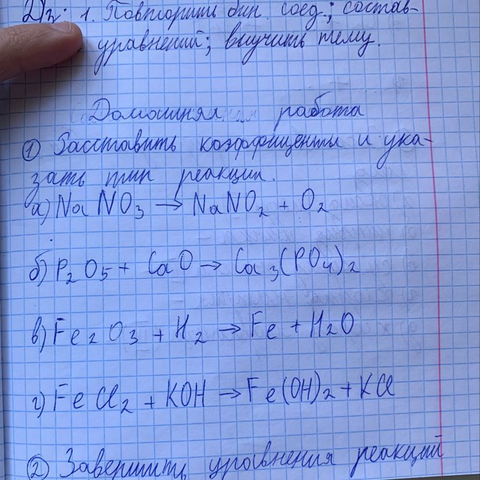 Д/з: 1. Повторить бин. соед.; состав-
уравнений; выучить тему.
Домашняя работа
① Расставить коэффициенты и ука-
зать тип реакции.
а) NaNO₃ → NaNO₂ + O₂
б) P₂O₅ + CaO → Ca₃(PO₄)₂
в) Fe₂O₃ + H₂ → Fe + H₂O
г) FeCl₂ + KOH → Fe(OH)₂ + KCl
② Завершить уравнения реакций